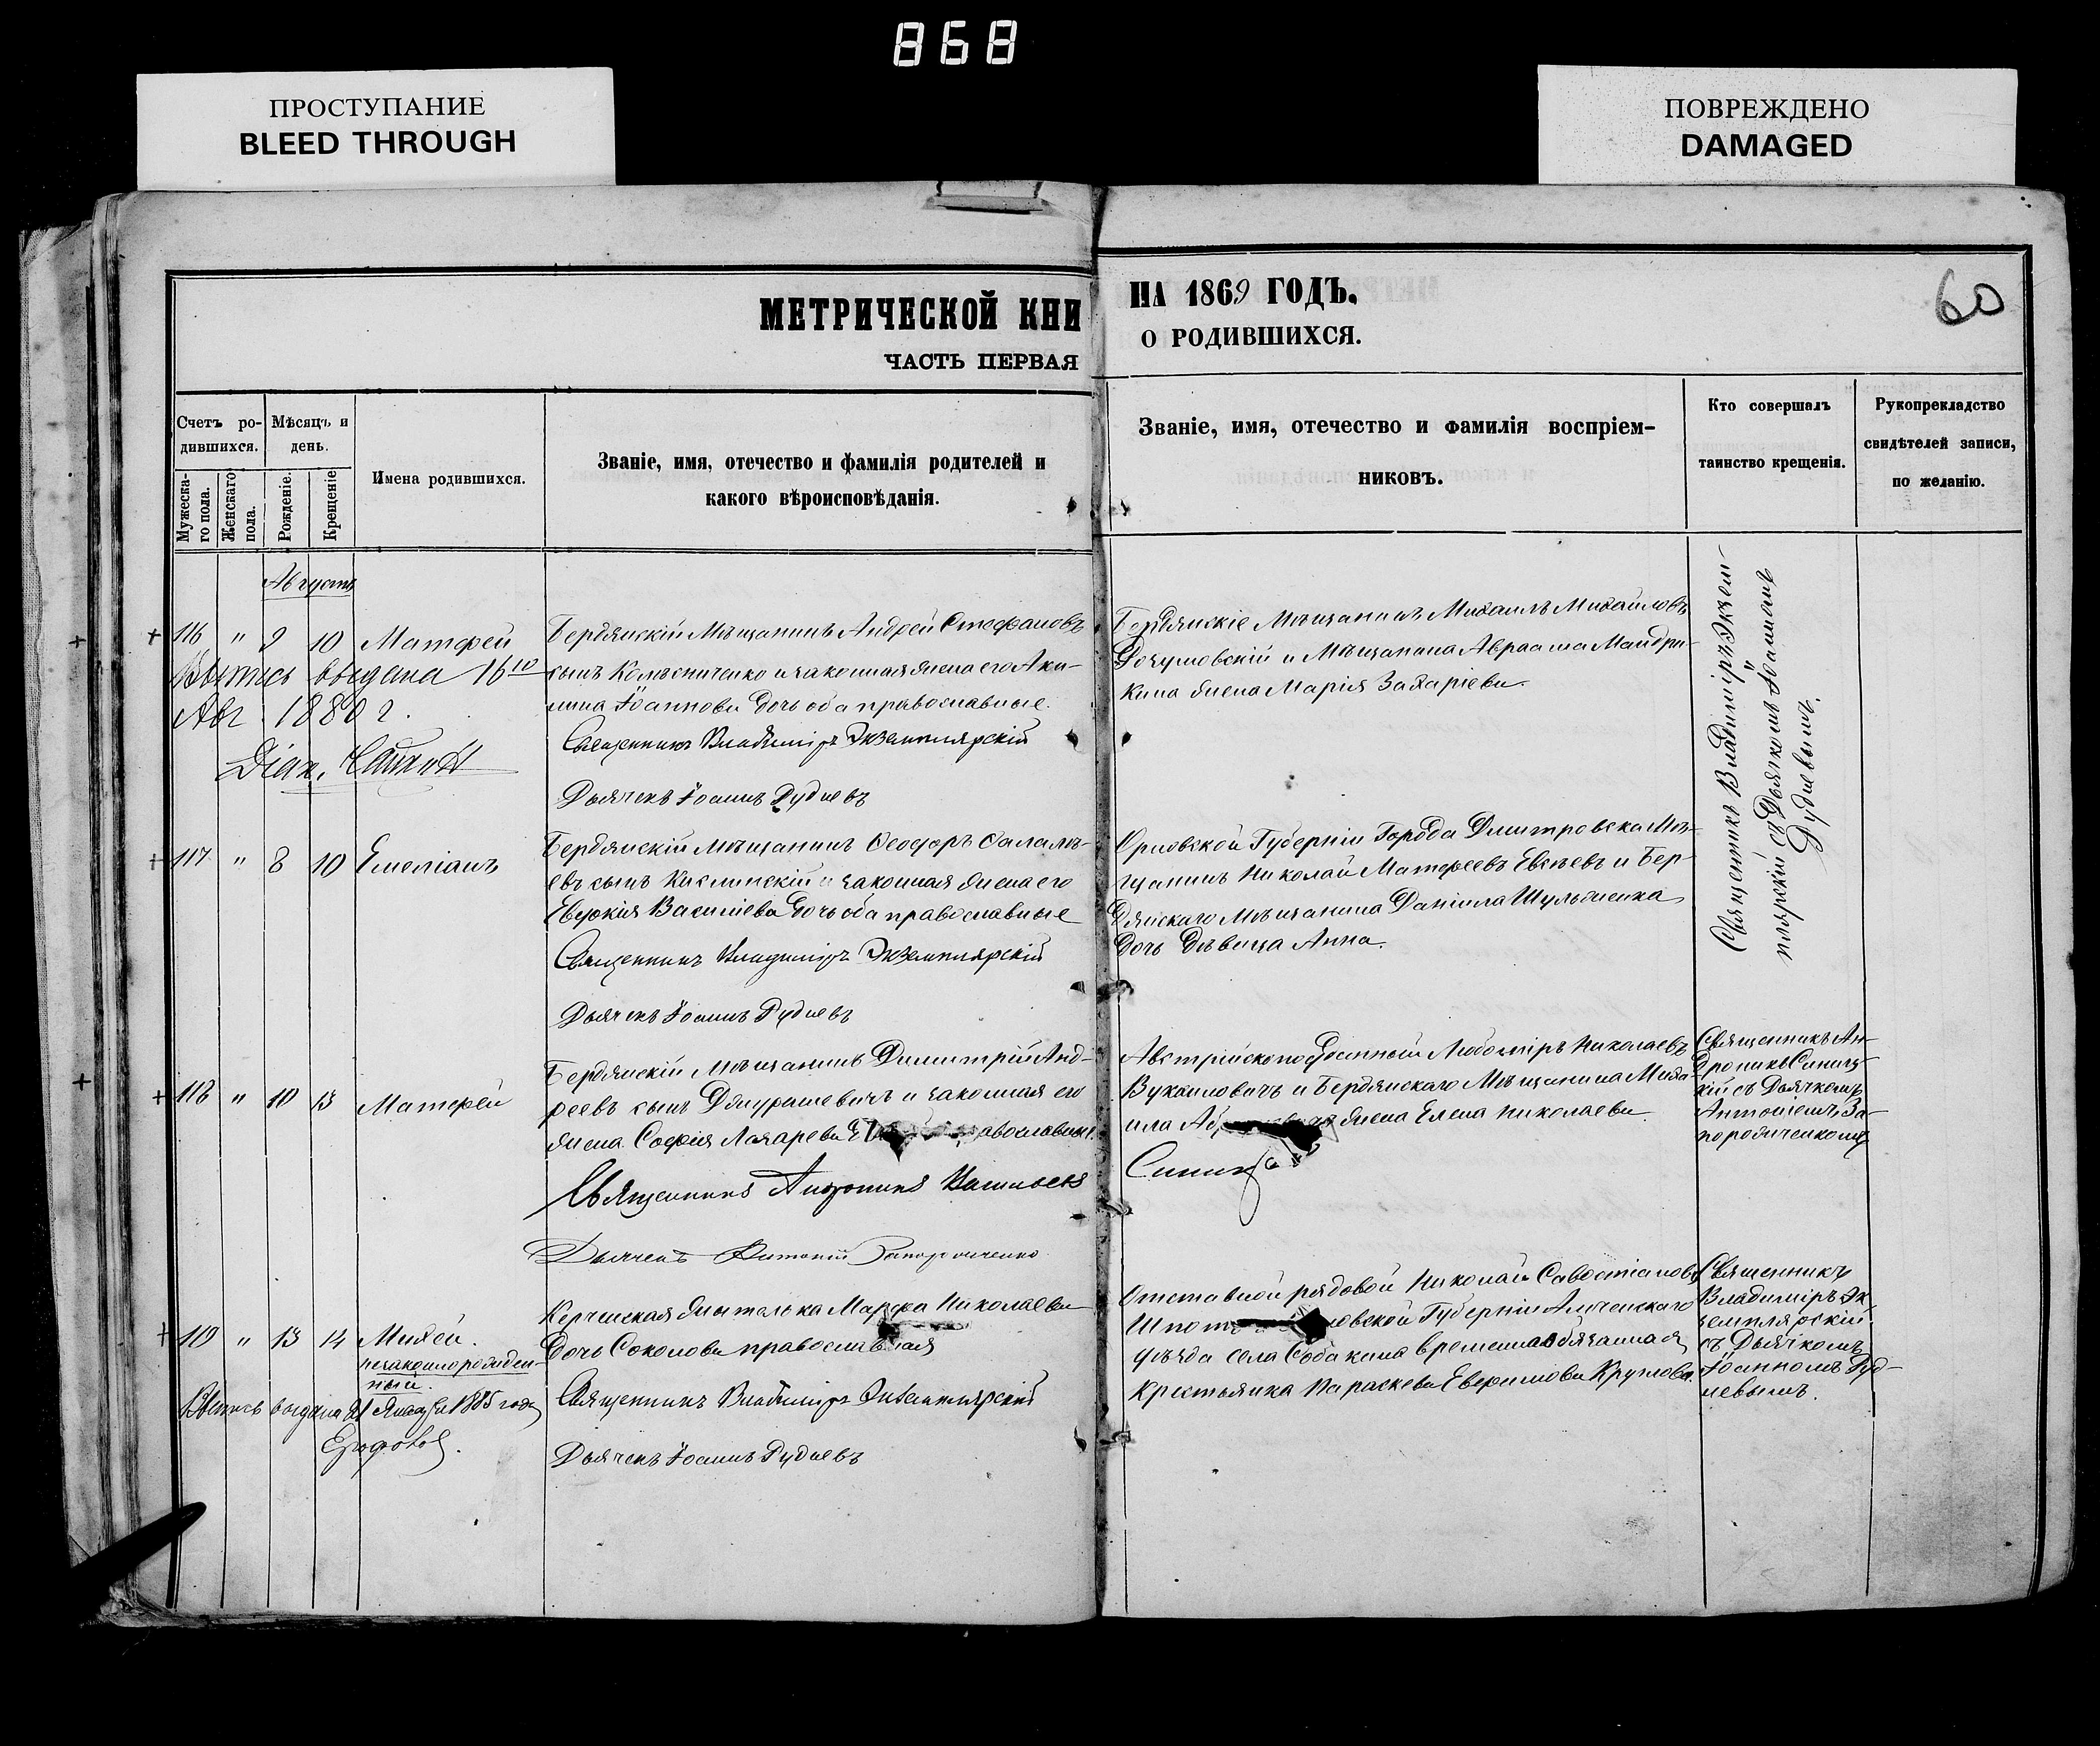 868
ПРОСТУПАНИЕ
BLEED THROUGH
ПОВРЕЖДЕНО
DAMAGED
60
МЕТРИЧЕСКОЙ КНИ
ЧАСТЬ ПЕРВАЯ
НА 1869 ГОДЪ.
О РОДИВШИХСЯ.
Счетъ ро-
дившихся.
Мужеска-
го пола.
Женскаго
пола.
Мѣсяцъ и
день.
Рожденіе.
Крещеніе
Имена родившихся.
Званіе, имя, отечество и фамилія родителей и
какого вѣроисповѣданія.
Званіе, имя, отечество и фамилія воспріем-
никовъ.
Кто совершалъ
таинство крещенія.
Рукоприкладство
свидѣтелей записи,
по желанію.
Августъ
116 " 9 10 Матфей
Выпись выдана 16
Авг. 1880 г.
Діак.
Бердянскій Мѣщанинъ Андрей Стефановъ
сынъ Колѣсниченко и законная жена его Аки-
лина Іоаннова дочь оба православные.
Священникъ Владиміръ Экземплярскій
Дьячекъ Іоаннъ Рудневъ
Бердянскіе Мѣщанинъ Михаилъ Михайловъ
и Мѣщанина Авраама Мандри-
кина жена Марія Захаріева.
Священникъ Владиміръ Экзем-
плярскій съ Дьячкомъ Іоанномъ
Рудневымъ.
117 " 8 10 Емеліанъ
Бердянскій мѣщанинъ Ѳеодоръ
евъ сынъ Кислинскій и законная жена его
Евдокія Василіева дочь оба православные
Священникъ Владиміръ Экземплярскій
Дьячекъ Іоаннъ Рудневъ
Орловской Губерніи Города Дмитровска Мѣ-
щанинъ Николай Матфеевъ Евсѣевъ и Бер-
дянскаго Мѣщанина Даніила Шульженка
дочь дѣвица Анна.
118 " 10 13 Матфей
Бердянскій мѣщанинъ Димитрій Анд-
реевъ сынъ и законная его
жена Софія Лазарева православны
Священникъ Андроникъ
Синиц
Дьячекъ Антоній Запорожченко
Австрійскоподданный Любоміръ Николаевъ
Вукаиловичъ и Бердянскаго Мѣщанина Миха-
ила жена Елена Николаева
Священникъ Ан-
дроникъ Синиц-
кій съ Дьячкомъ
Антоніемъ За-
порожченкомъ
" 13 14 Михей.
незаконнорожден-
ный.
Выпись выдана 21 Января 1885 года
Керченская жителька Марфа Николаева
дочь Соколова православная
Священникъ Владиміръ Экземплярскій
Дьячекъ Іоаннъ Рудневъ
Отставной рядовой Николай Савостіановъ
овской Губерніи Алченскаго
уѣзда села Собакина временнообязанная
крестьянка Параскева Евфимова Круглова.
Священникъ
Владиміръ Эк-
земплярскій
съ Дьячкомъ
Іоанномъ Руд-
невымъ.